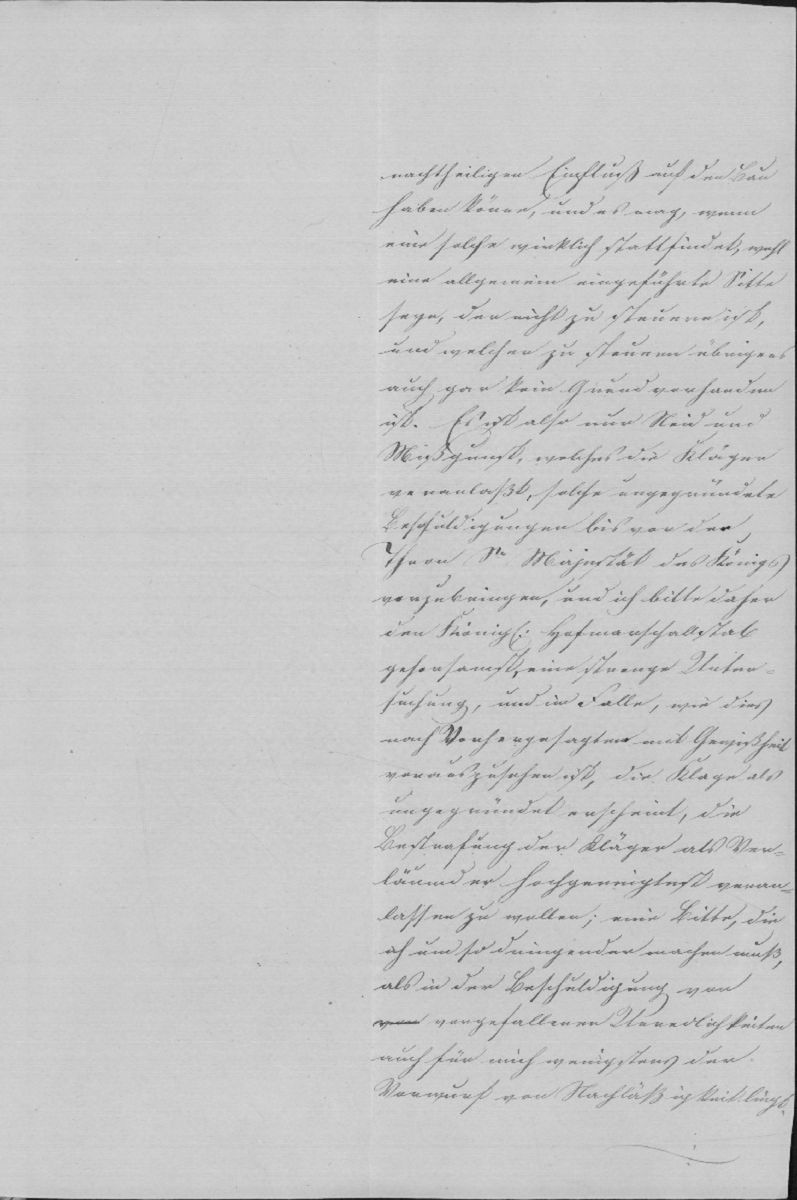 nachtheiligen Einfluß auf den Bau
haben könne, und es mag, wenn
eine solche wirklich stattfindet, wohl
eine allgemein eingeführte Sitte
seyn, der nicht zu steuern ist,
und welcher zu steuern übrigens
auch gar kein Grund vorhanden
ist. Es ist also nur Neid und
Mißgunst, welches die Kläger
veranlaßt, solche ungegründete
Beschuldigungen bis vor den
Thron Sr Majestät des Königs
vorzubringen, und ich bitte daher
den Königl: Hofmarschallstab
gehorsamst, eine strenge Unter-
suchung, und im Falle, wie dies
nach Vorhergesagten mit Gewißheit
vorauszusehen ist, die Klage als
ungegründet erscheint, die
Bestrafung der Kläger als Ver-
läumder hochgeneigtest veran-
lassen zu wollen; eine Bitte, die
ich um so dringender machen muß,
als in der Beschuldigung von
von vorgefallenen Unredlichkeiten
auch für mich wenigstens der
Vorwurf von Nachläßigkeit liegt.